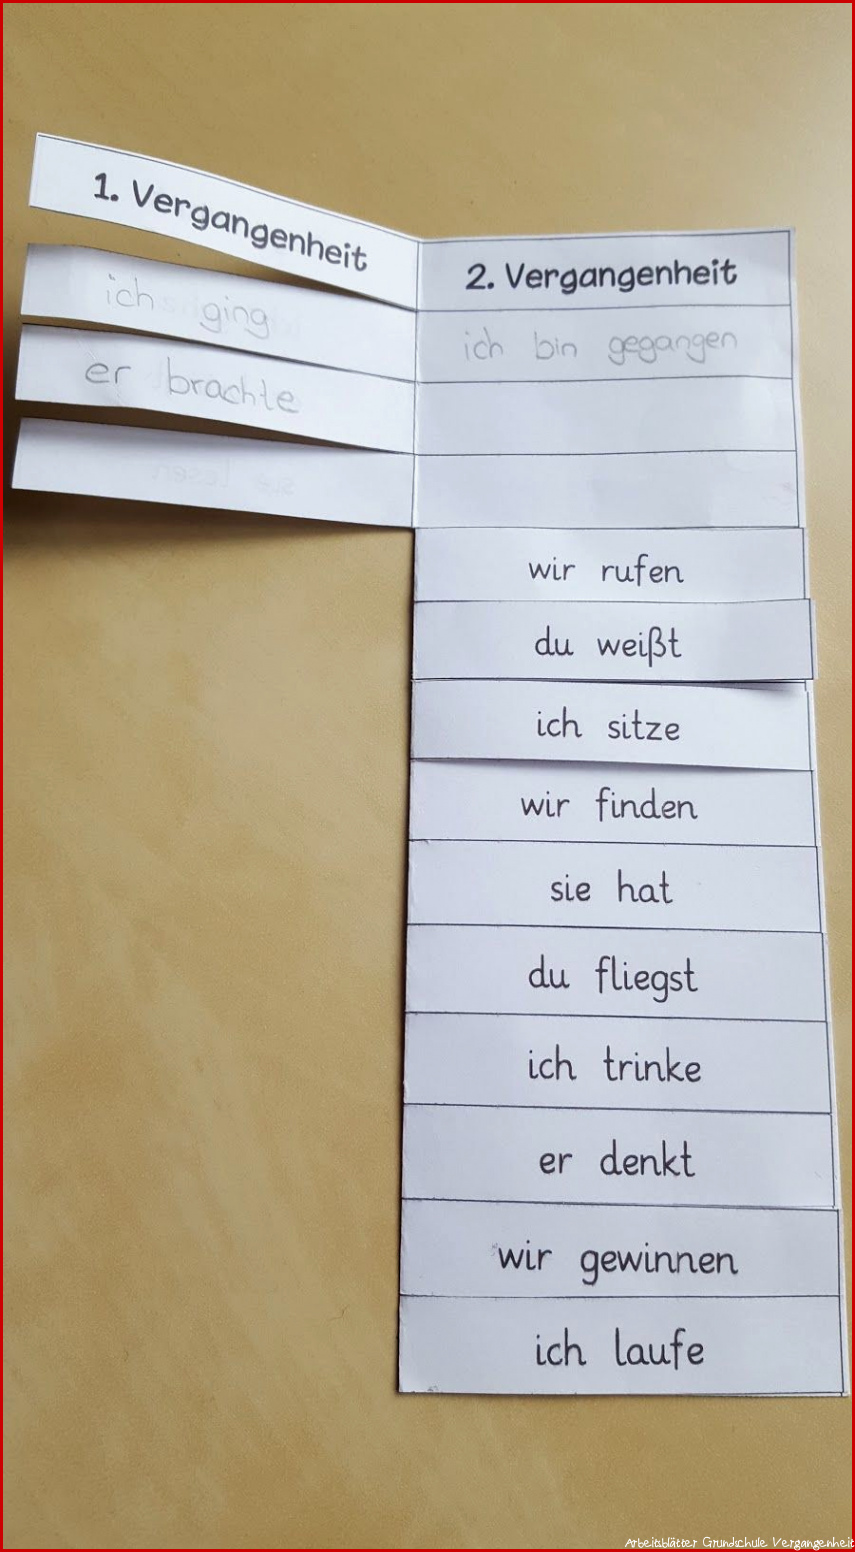 1. Vergangenheit
2. Vergangenheit
ich ging
ich bin gegangen
er brachte
wir rufen
du weißt
ich sitze
wir finden
sie hat
du fliegst
ich trinke
er denkt
wir gewinnen
ich laufe
Arbeitsblätter Grundschule Vergangenheit